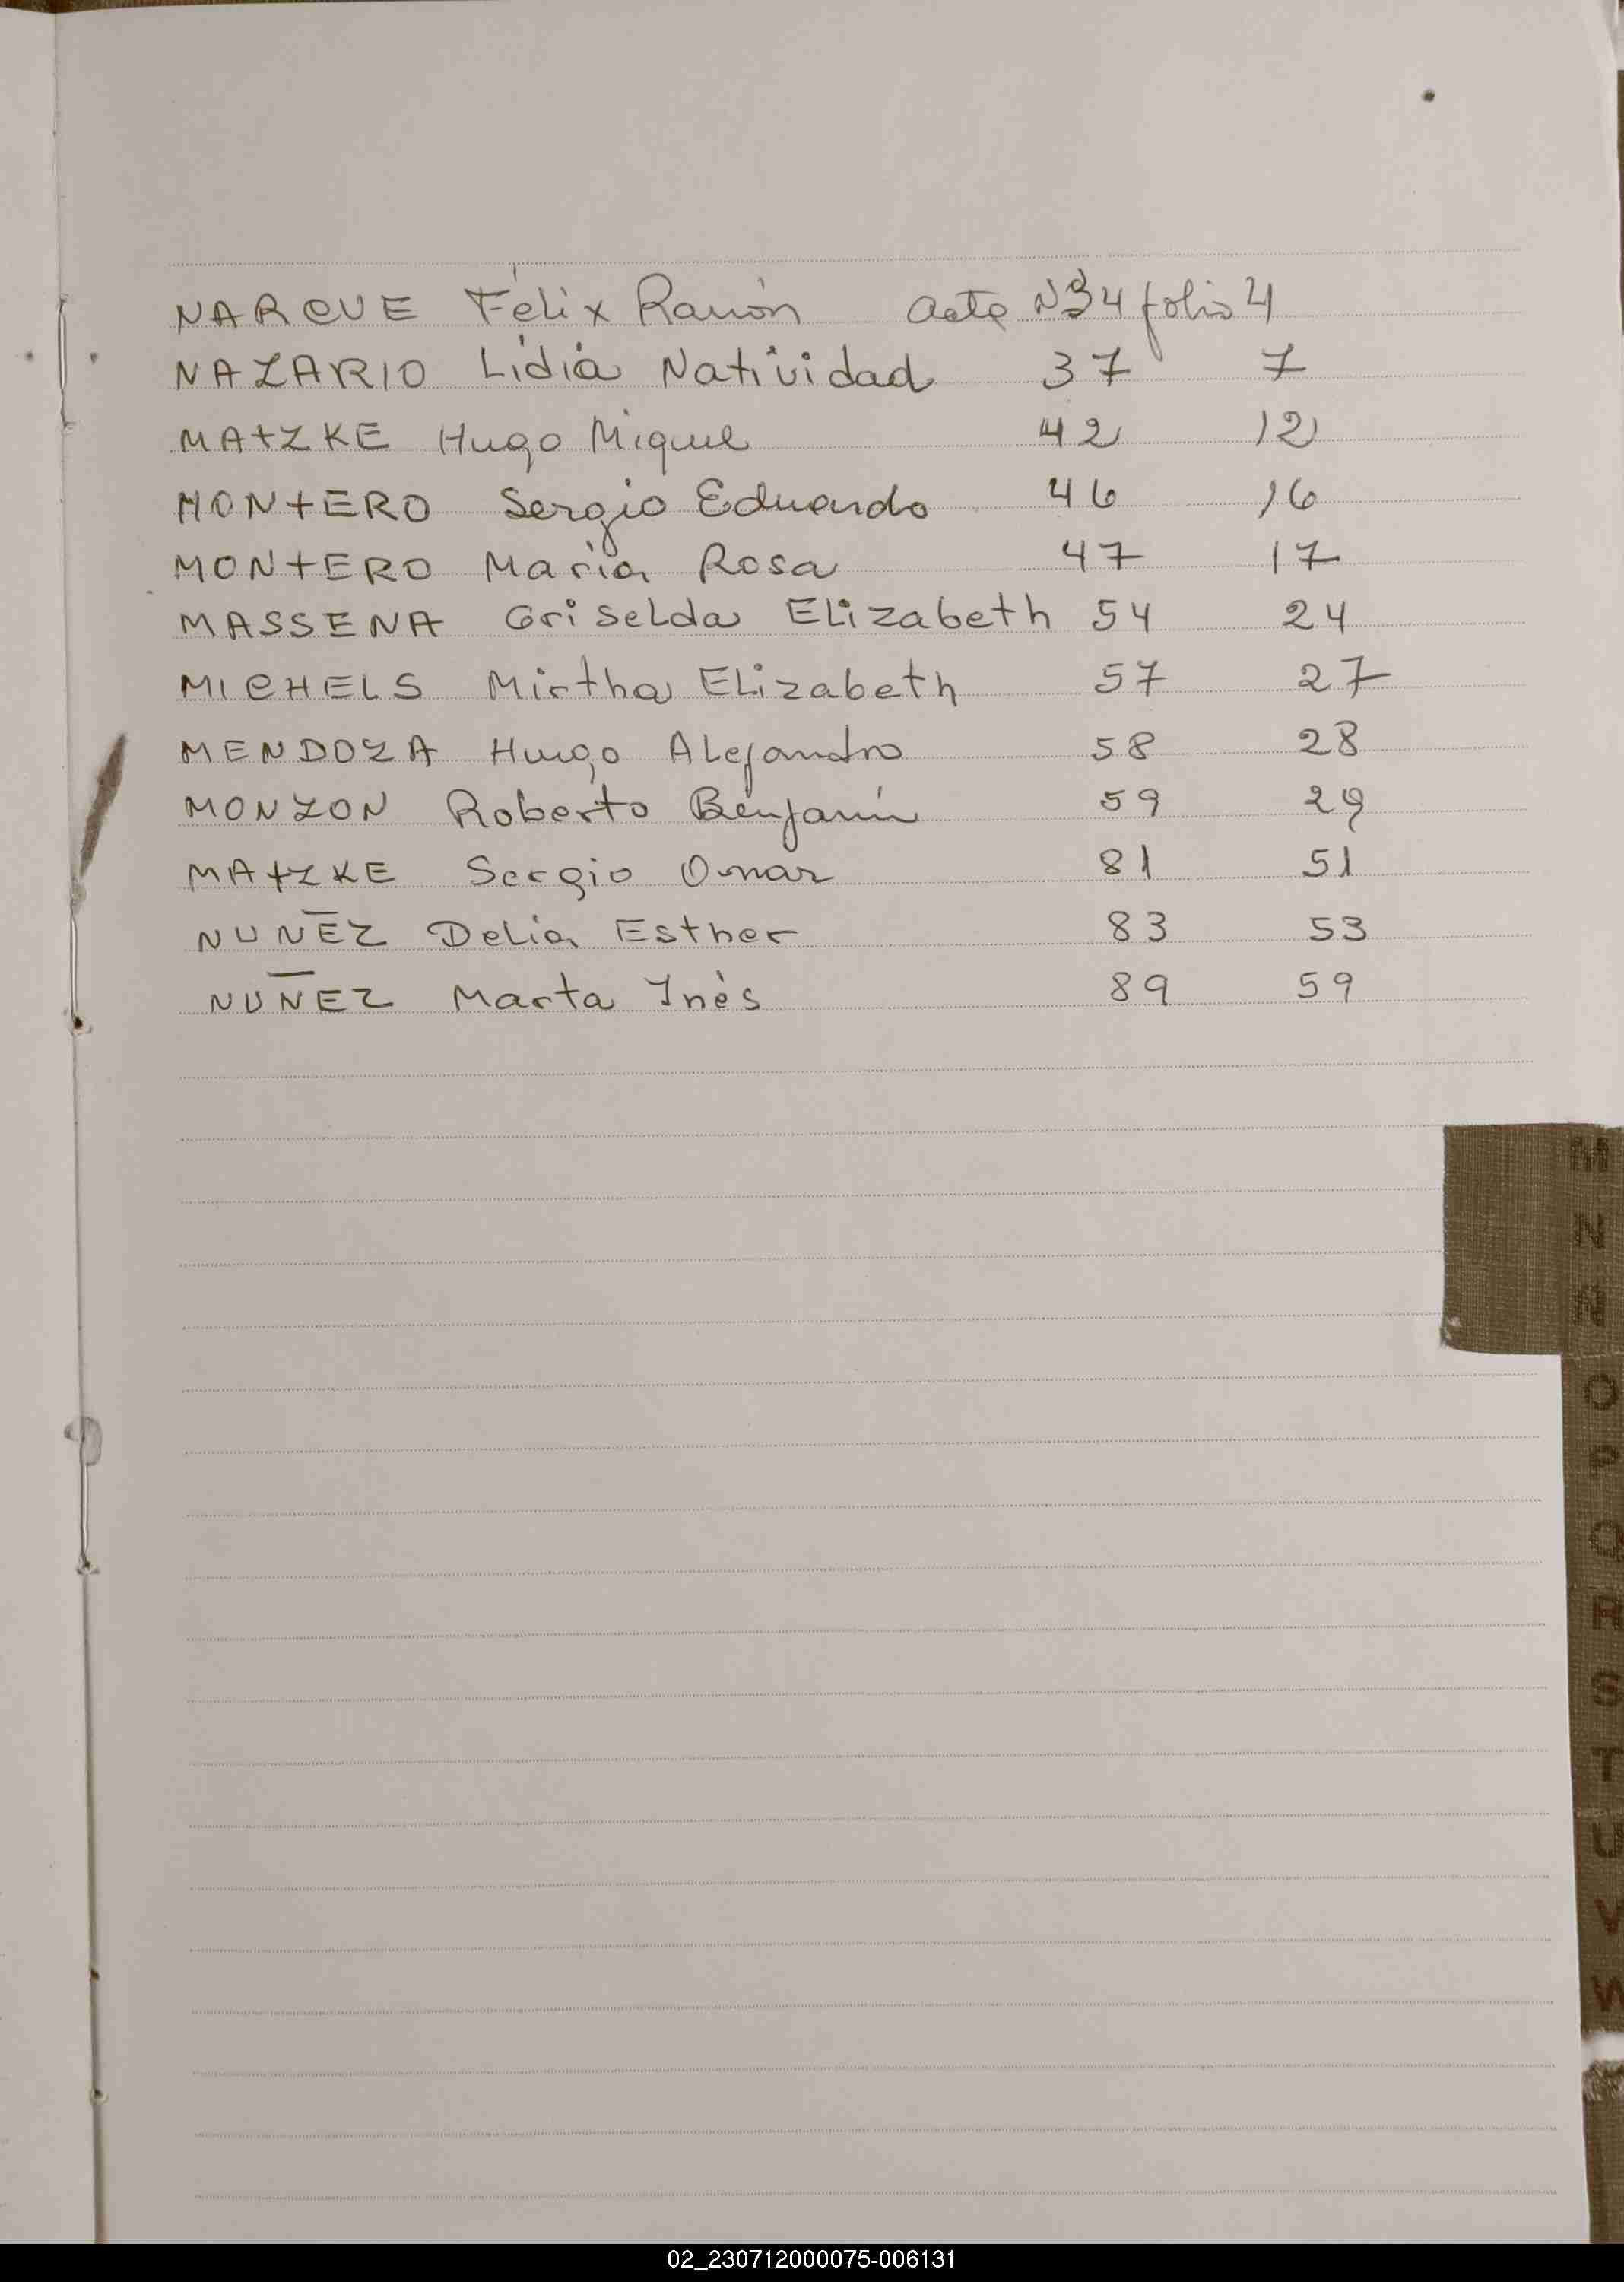 NARCUE Félix Ramón acta Nº34 folio 4
NAZARIO Lidia Natividad 37 7
MATZKE Hugo Miguel 42 12
MONTERO Sergio Eduardo 46 16
MONTERO María Rosa 47 17
MASSENA Griselda Elizabeth 54 24
MICHELS Mirtha Elizabeth 57 27
MENDOZA Hugo Alejandro 58 28
MONZON Roberto Benjamín 59 29
MATZKE Sergio Omar 81 51
NUÑEZ Delia Esther 83 53
NUÑEZ Marta Inés 89 59
M
N
Ñ
O
P
Q
R
S
T
U
V
W
02_230712000075-006131